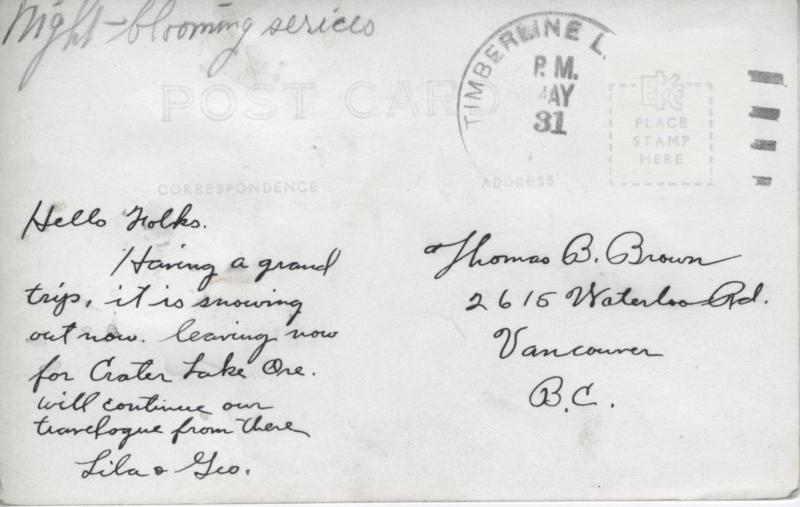 Night-blooming serices
TIMBERLINE L.
P.M.
MAY
31
POST CARD
EKC
PLACE
STAMP
HERE
CORRESPONDENCE
ADDRESS
Hello Folks.
Having a grand
trip, it is snowing
out now. leaving now
for Crater Lake Ore.
will continue our
travelogue from there
Lila & Geo.
Thomas B. Brown
2615 Waterloo Rd.
Vancouver
B.C.